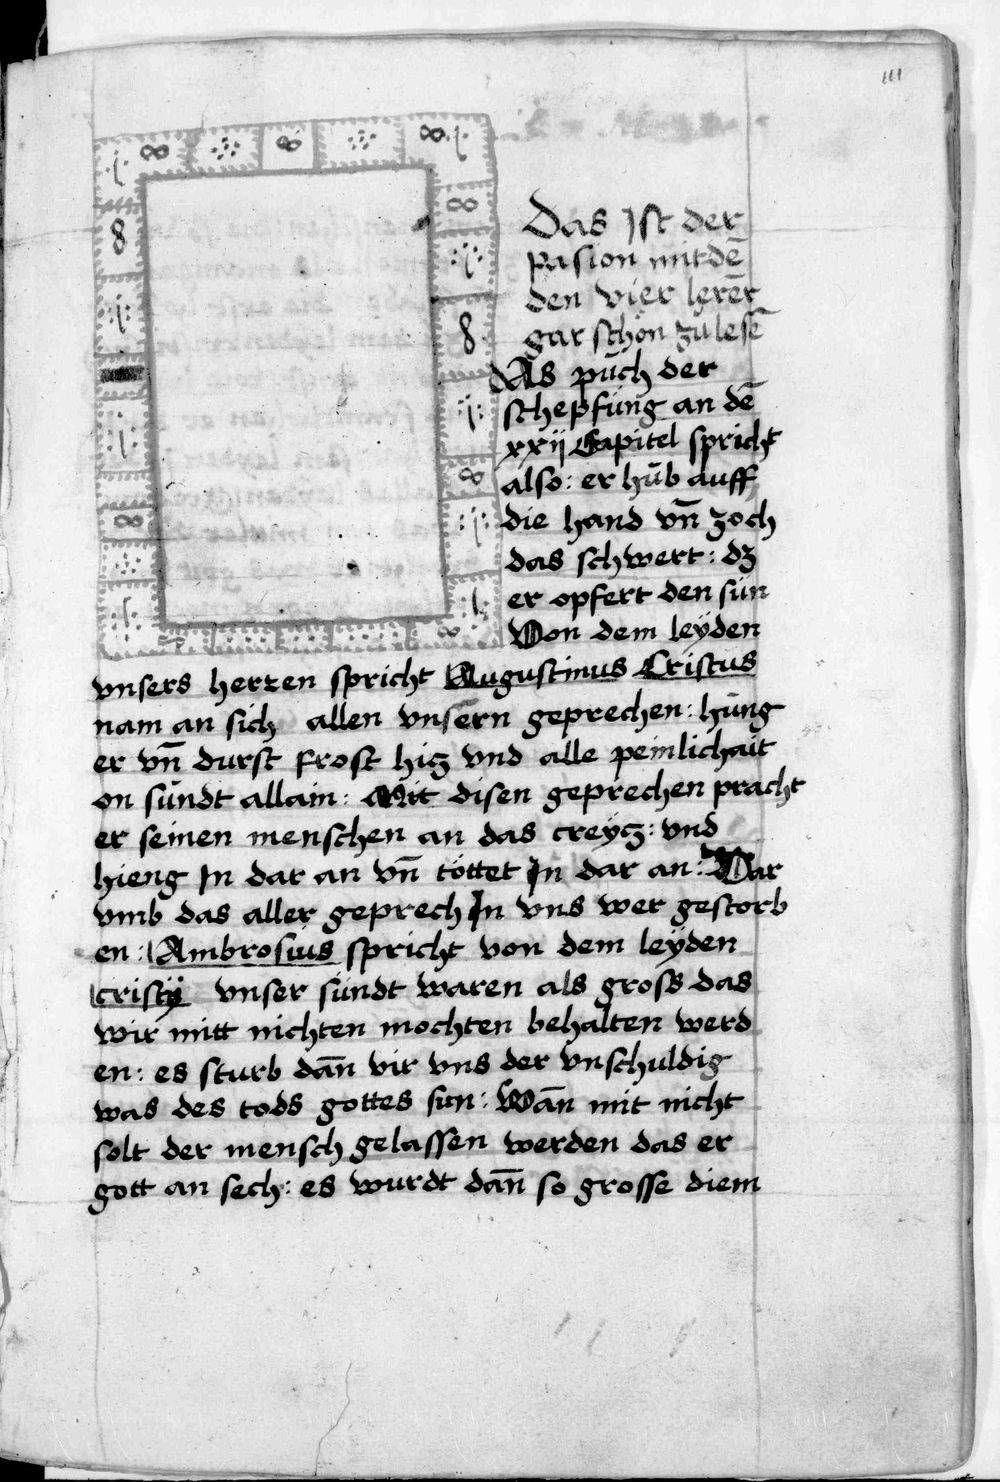 111
Das Jst der
pasion mit dē
den vier lerēr
gar schon zu lesē
As pu̇ch der
schepfu̇ng an dē
xxij Capitel spricht
also: er hu̇b auff
die hand vn̄ zoch
das schwert: dz
er opfert den su̇n
Von dem leyden
vnsers herzen spricht Augustinus Cristus
nam an sich allen vnsern geprechen: hu̇ng
er vn̄ durst frost hicz vnd alle peinlichait
on su̇ndt allain: Mit disen geprechen pracht
er seinen menschen an das creycz: vnd
hieng Jn dar an vn̄ töttet Jn dar an: Dar
vmb das aller geprech Jn vns wer gestorb
en: Ambrosius spricht von dem leÿden
cristÿ vnser su̇ndt waren als gross das
wir mitt nichten mochten behalten werd
en: es sturb dan̄ vir vns der vnschuldig
was des tods gottes sun: Wan̄ mit nicht
solt der mensch gelassen werden das er
gott an sech: es wurdt dan̄ so grosse diem